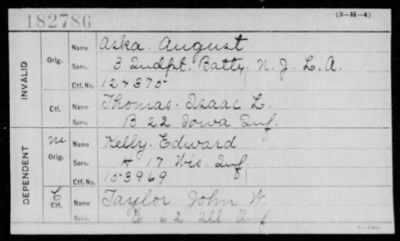 182786
(3-H-4)
INVALID
Orig.
Name Aska. August
Serv. 3 Indpt. Batty. N. J. L. A.
Ctf. No. 124375
Ctf.
Name Thomas. Isaac L.
Serv. B 22 Iowa Inf.
DEPENDENT
Orig.
Name Kelly. Edward
Serv. A 17 Wis. Inf
Ctf. No. 153969
Ctf.
Name Taylor John W
Serv. E 62 Ill. Inf